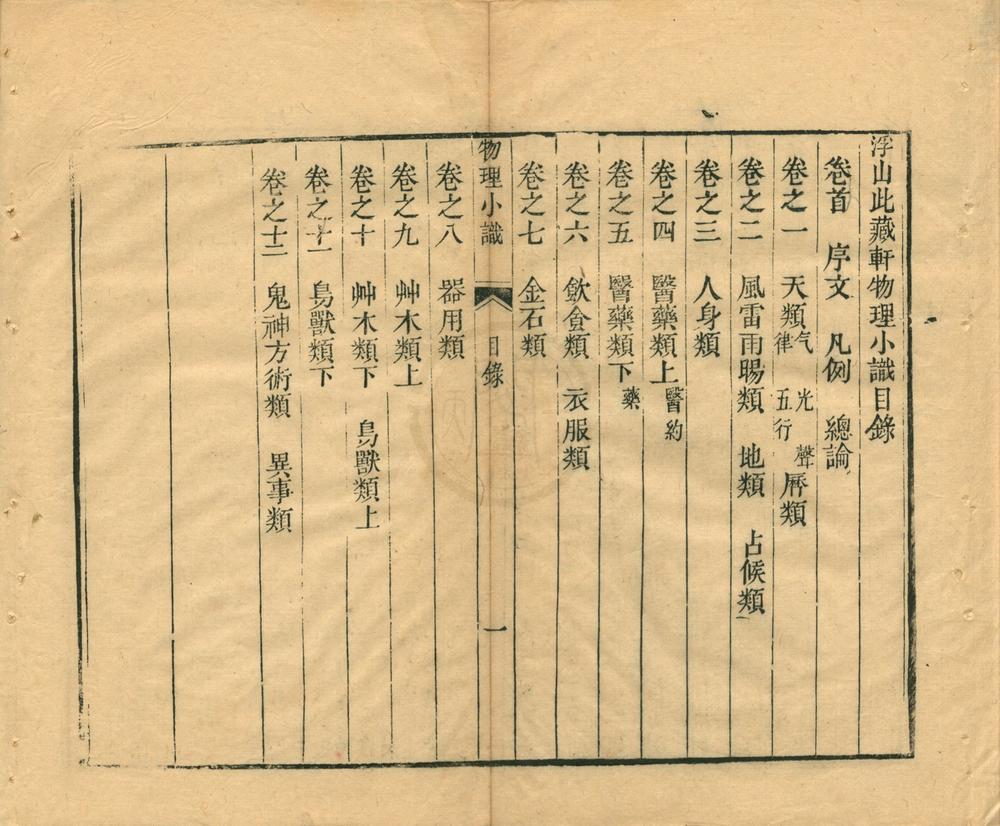 浮山此藏軒物理小識目錄
卷首 序文 凡例 總論
卷之一 天類 气 光 聲 律 五行 厤類
卷之二 風雷雨暘類 地類 占候類
卷之三 人身類
卷之四 醫藥類上 醫約
卷之五 醫藥類下 藥
卷之六 飲食類 衣服類
卷之七 金石類
物理小識 目錄 一
卷之八 器用類
卷之九 艸木類上
卷之十 艸木類下 鳥獸類上
卷之十一 鳥獸類下
卷之十二 鬼神方術類 異事類